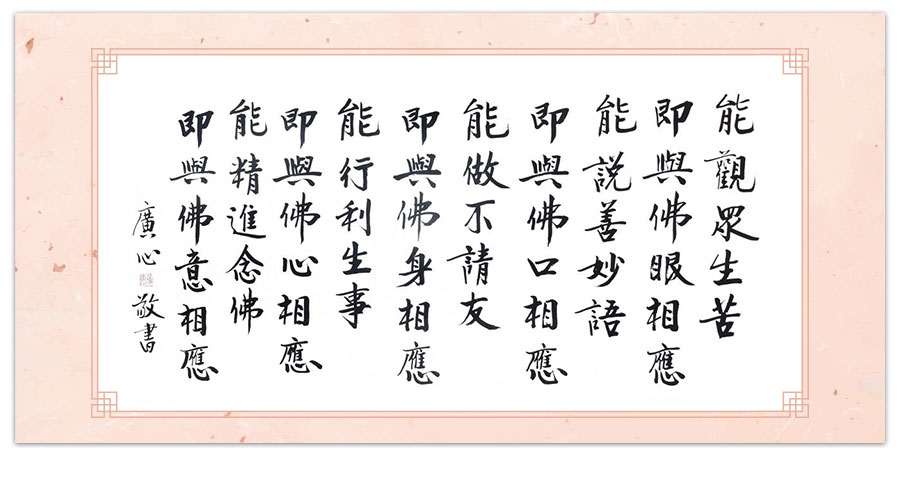 能觀眾生苦
即與佛眼相應
能說善妙語
即與佛口相應
能做不請友
即與佛身相應
能行利生事
即與佛心相應
能精進念佛
即與佛意相應
廣心 敬書